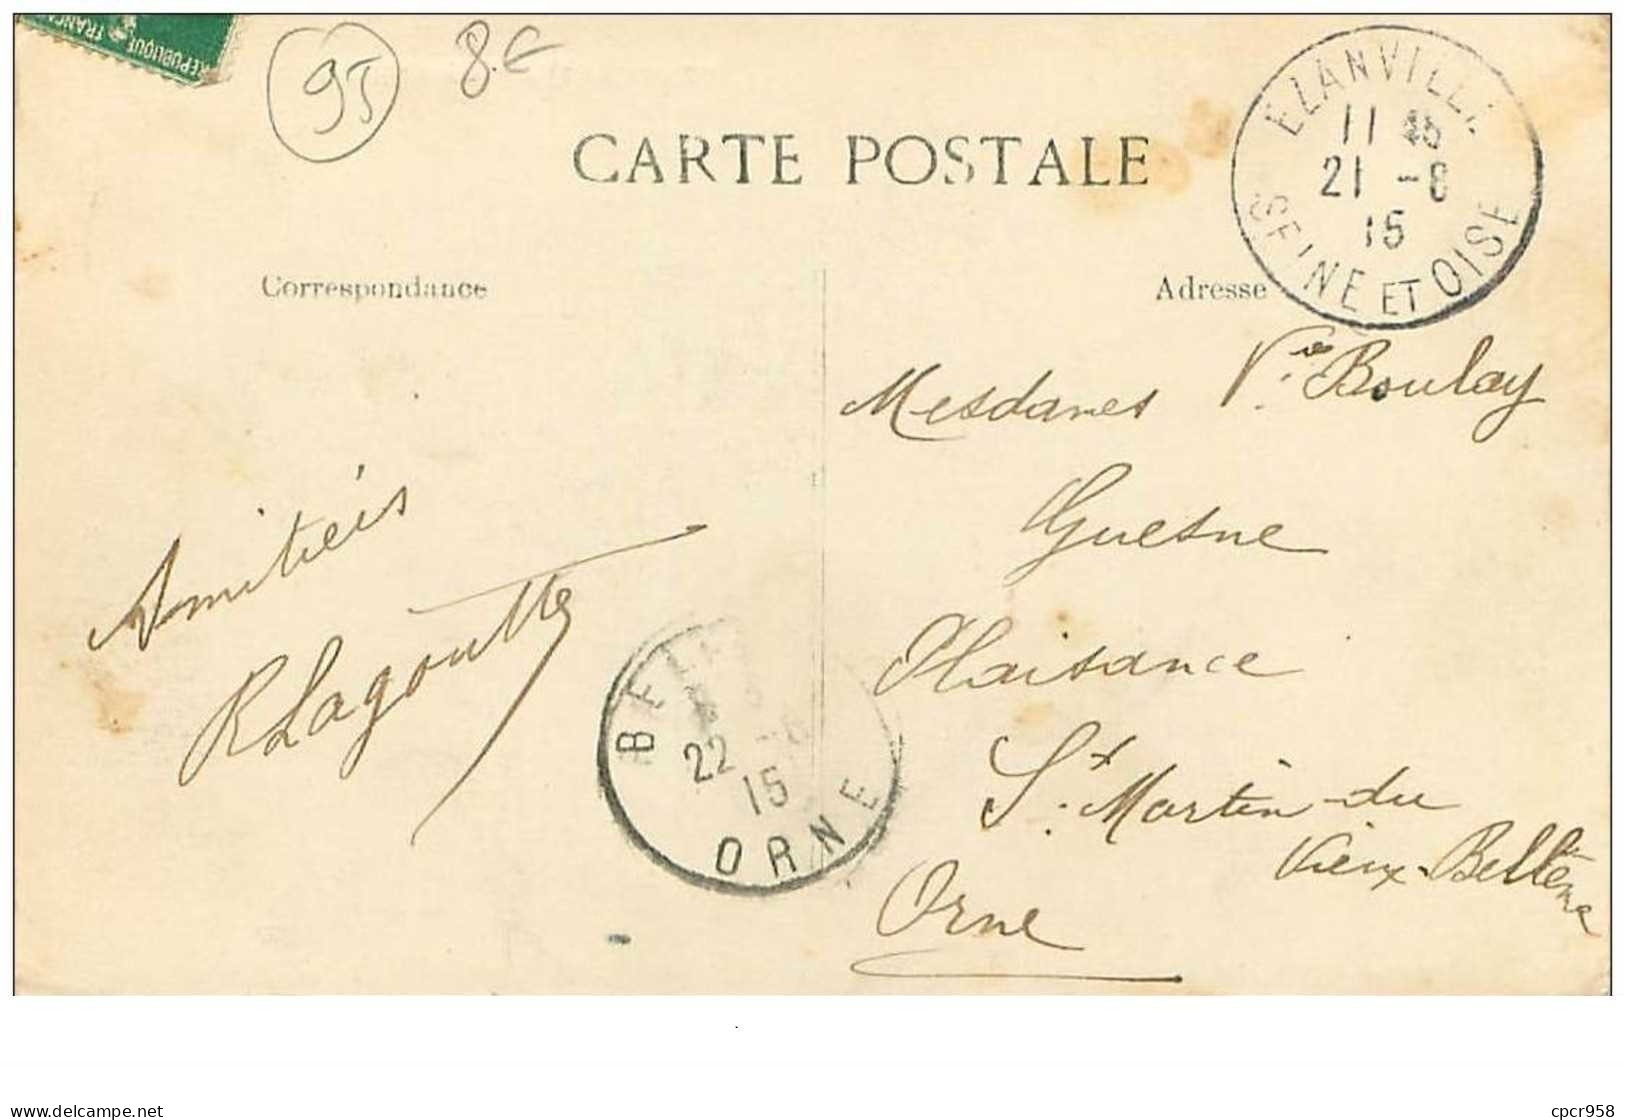 REPUBLIQUE FRANÇA
95
8.€
CARTE POSTALE
EZANVILLE
11 45
21 -8
15
SEINE ET OISE
Correspondance
Adresse
Mesdames Vve Boulay
Guesne
Plaisance
St. Martin-du
Vieux-Bellême
Orne
Amitiés
RLagoutte
BE
22
15
ORNE
cpcr958